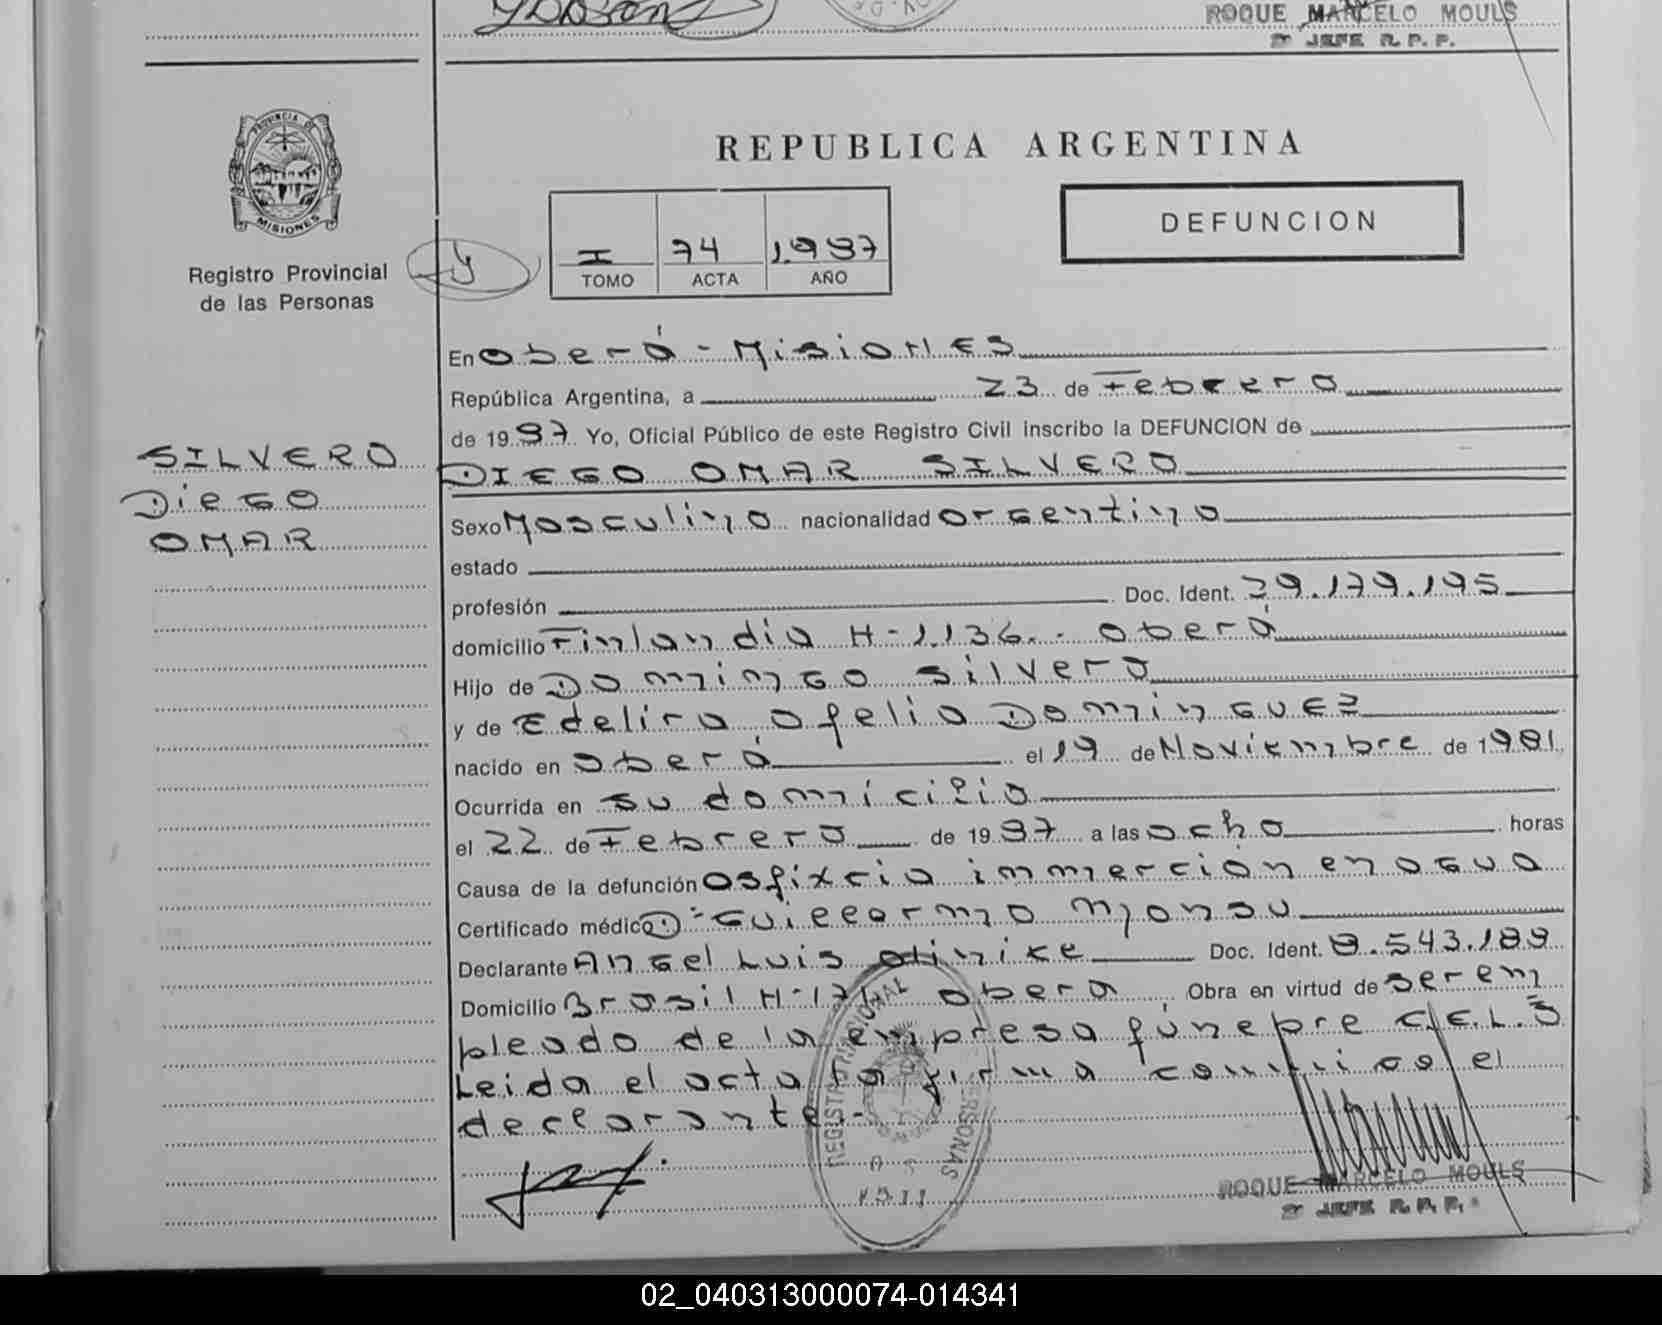 ROQUE MARCELO MOULS
2º JEFE R.P.P.
PROVINCIA DE
MISIONES
Registro Provincial
de las Personas
REPUBLICA ARGENTINA
I 74 1.997
TOMO ACTA AÑO
DEFUNCION
SILVERO
Diego
OMAR
En Oberá - Misiones
República Argentina, a 23 de Febrero
de 1997 Yo, Oficial Público de este Registro Civil inscribo la DEFUNCION de
DIEGO OMAR SILVERO
Sexo Masculino nacionalidad argentino
estado
profesión Doc. Ident. 29.179.195
domicilio Finlandia H-1.136.- Oberá
Hijo de Domingo Silvero
y de Edelira Ofelia Dominguez
nacido en Oberá el 19 de Noviembre de 1981
Ocurrida en su domicilio
el 22 de Febrero de 1997 a las ocho horas
Causa de la defunción asfixcia inmerción en agua
Certificado médico Dr Guillermo
Declarante Angel Luis Doc. Ident. 8.543.189
Domicilio Brasil Oberá Obra en virtud de ser em
pleado de la empresa fúnebre C.E.L.
Leida el acta la firma conmigo el
declarante.-
REGISTRO PROVINCIAL PERSONAS
ROQUE MARCELO MOULS
2º JEFE R.P.P.
02_040313000074-014341